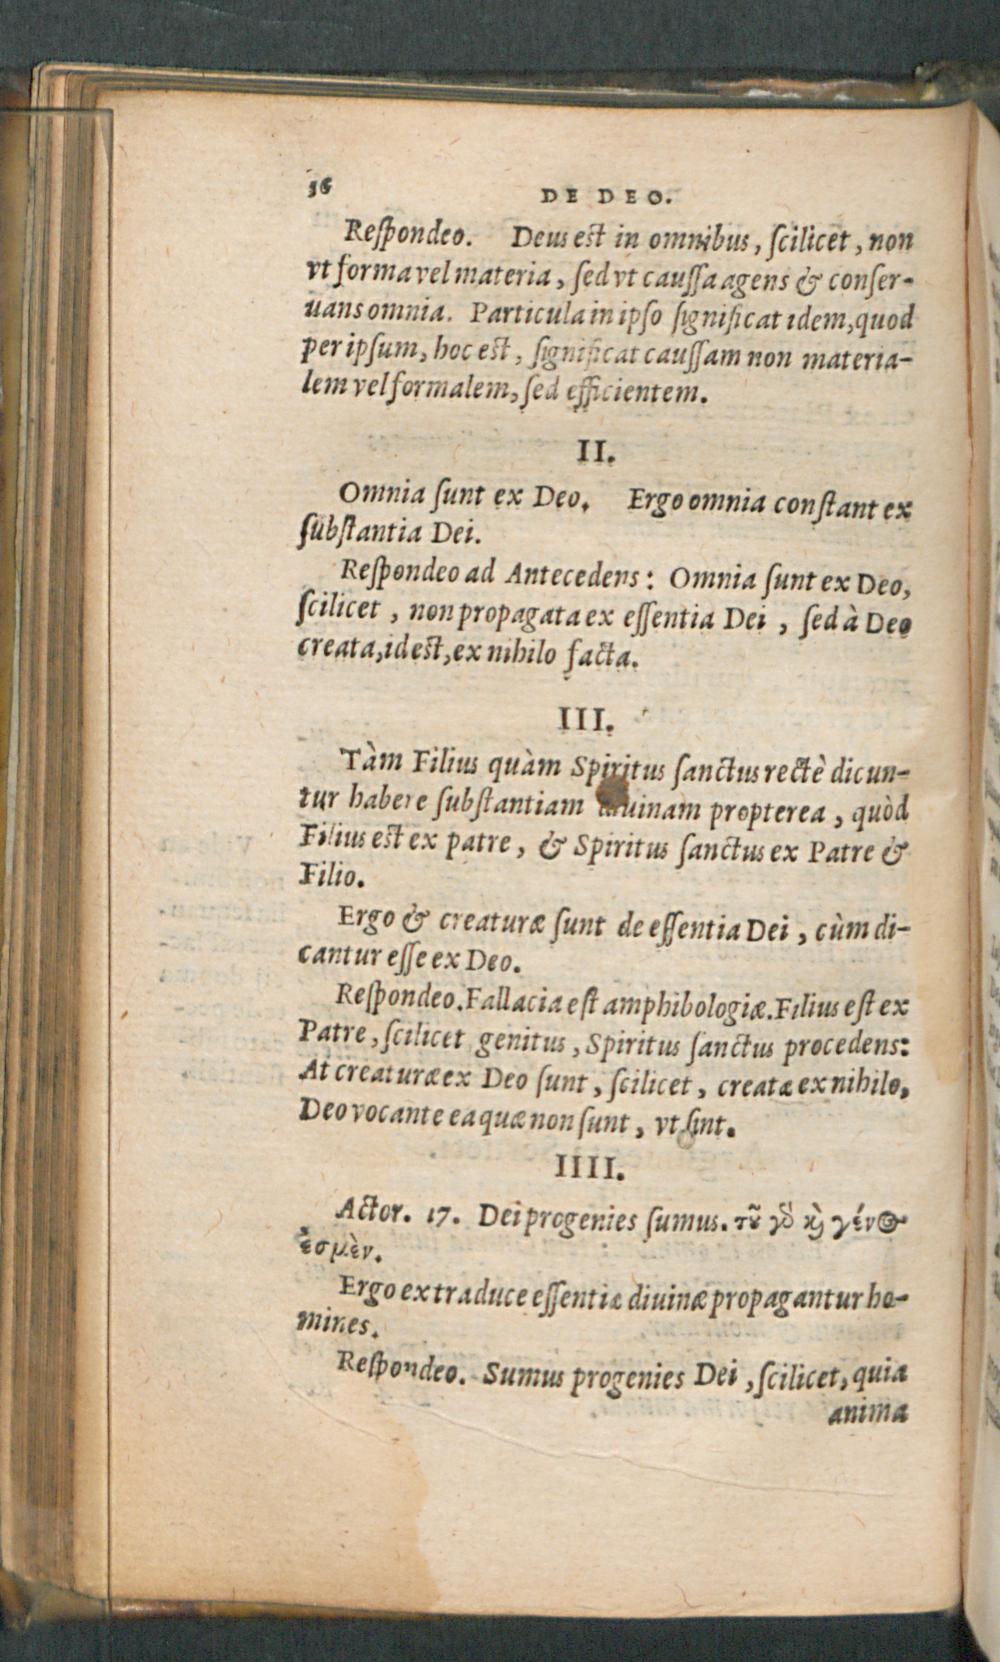 36
DE DEO.
Reſpondeo. Deus eſt in omnibus, ſcilicet, non
vt forma vel materia, ſed vt cauſſa agens & conſer-
uans omnia. Particula in ipſo ſignificat idem, quod
per ipſum, hoc eſt, ſignificat cauſſam non materia-
lem vel formalem, ſed efficientem.
II.
Omnia ſunt ex Deo. Ergo omnia conſtant ex
ſubſtantia Dei.
Reſpondeo ad Antecedens: Omnia ſunt ex Deo,
ſcilicet, non propagata ex eſſentia Dei, ſed à Deo
creata, id eſt, ex nihilo facta.
III.
Tàm Filius quàm Spiritus ſanctus rectè dicun-
tur habere ſubſtantiam diuinam propterea, quòd
Filius eſt ex patre, & Spiritus ſanctus ex Patre &
Filio.
Ergo & creaturæ ſunt de eſſentia Dei, cùm di-
cantur eſſe ex Deo.
Reſpondeo. Fallacia eſt amphibologiæ. Filius eſt ex
Patre, ſcilicet genitus, Spiritus ſanctus procedens:
At creaturæ ex Deo ſunt, ſcilicet, creatæ ex nihilo,
Deo vocante ea quæ non ſunt, vt ſint.
IIII.
Actor. 17. Dei progenies ſumus. τȣ͂ γὸ ϗ̀ γένος
ἐσμὲν.
Ergo ex traduce eſſentiæ diuinæ propagantur ho-
mines.
Reſpondeo. Sumus progenies Dei, ſcilicet, quia
anima